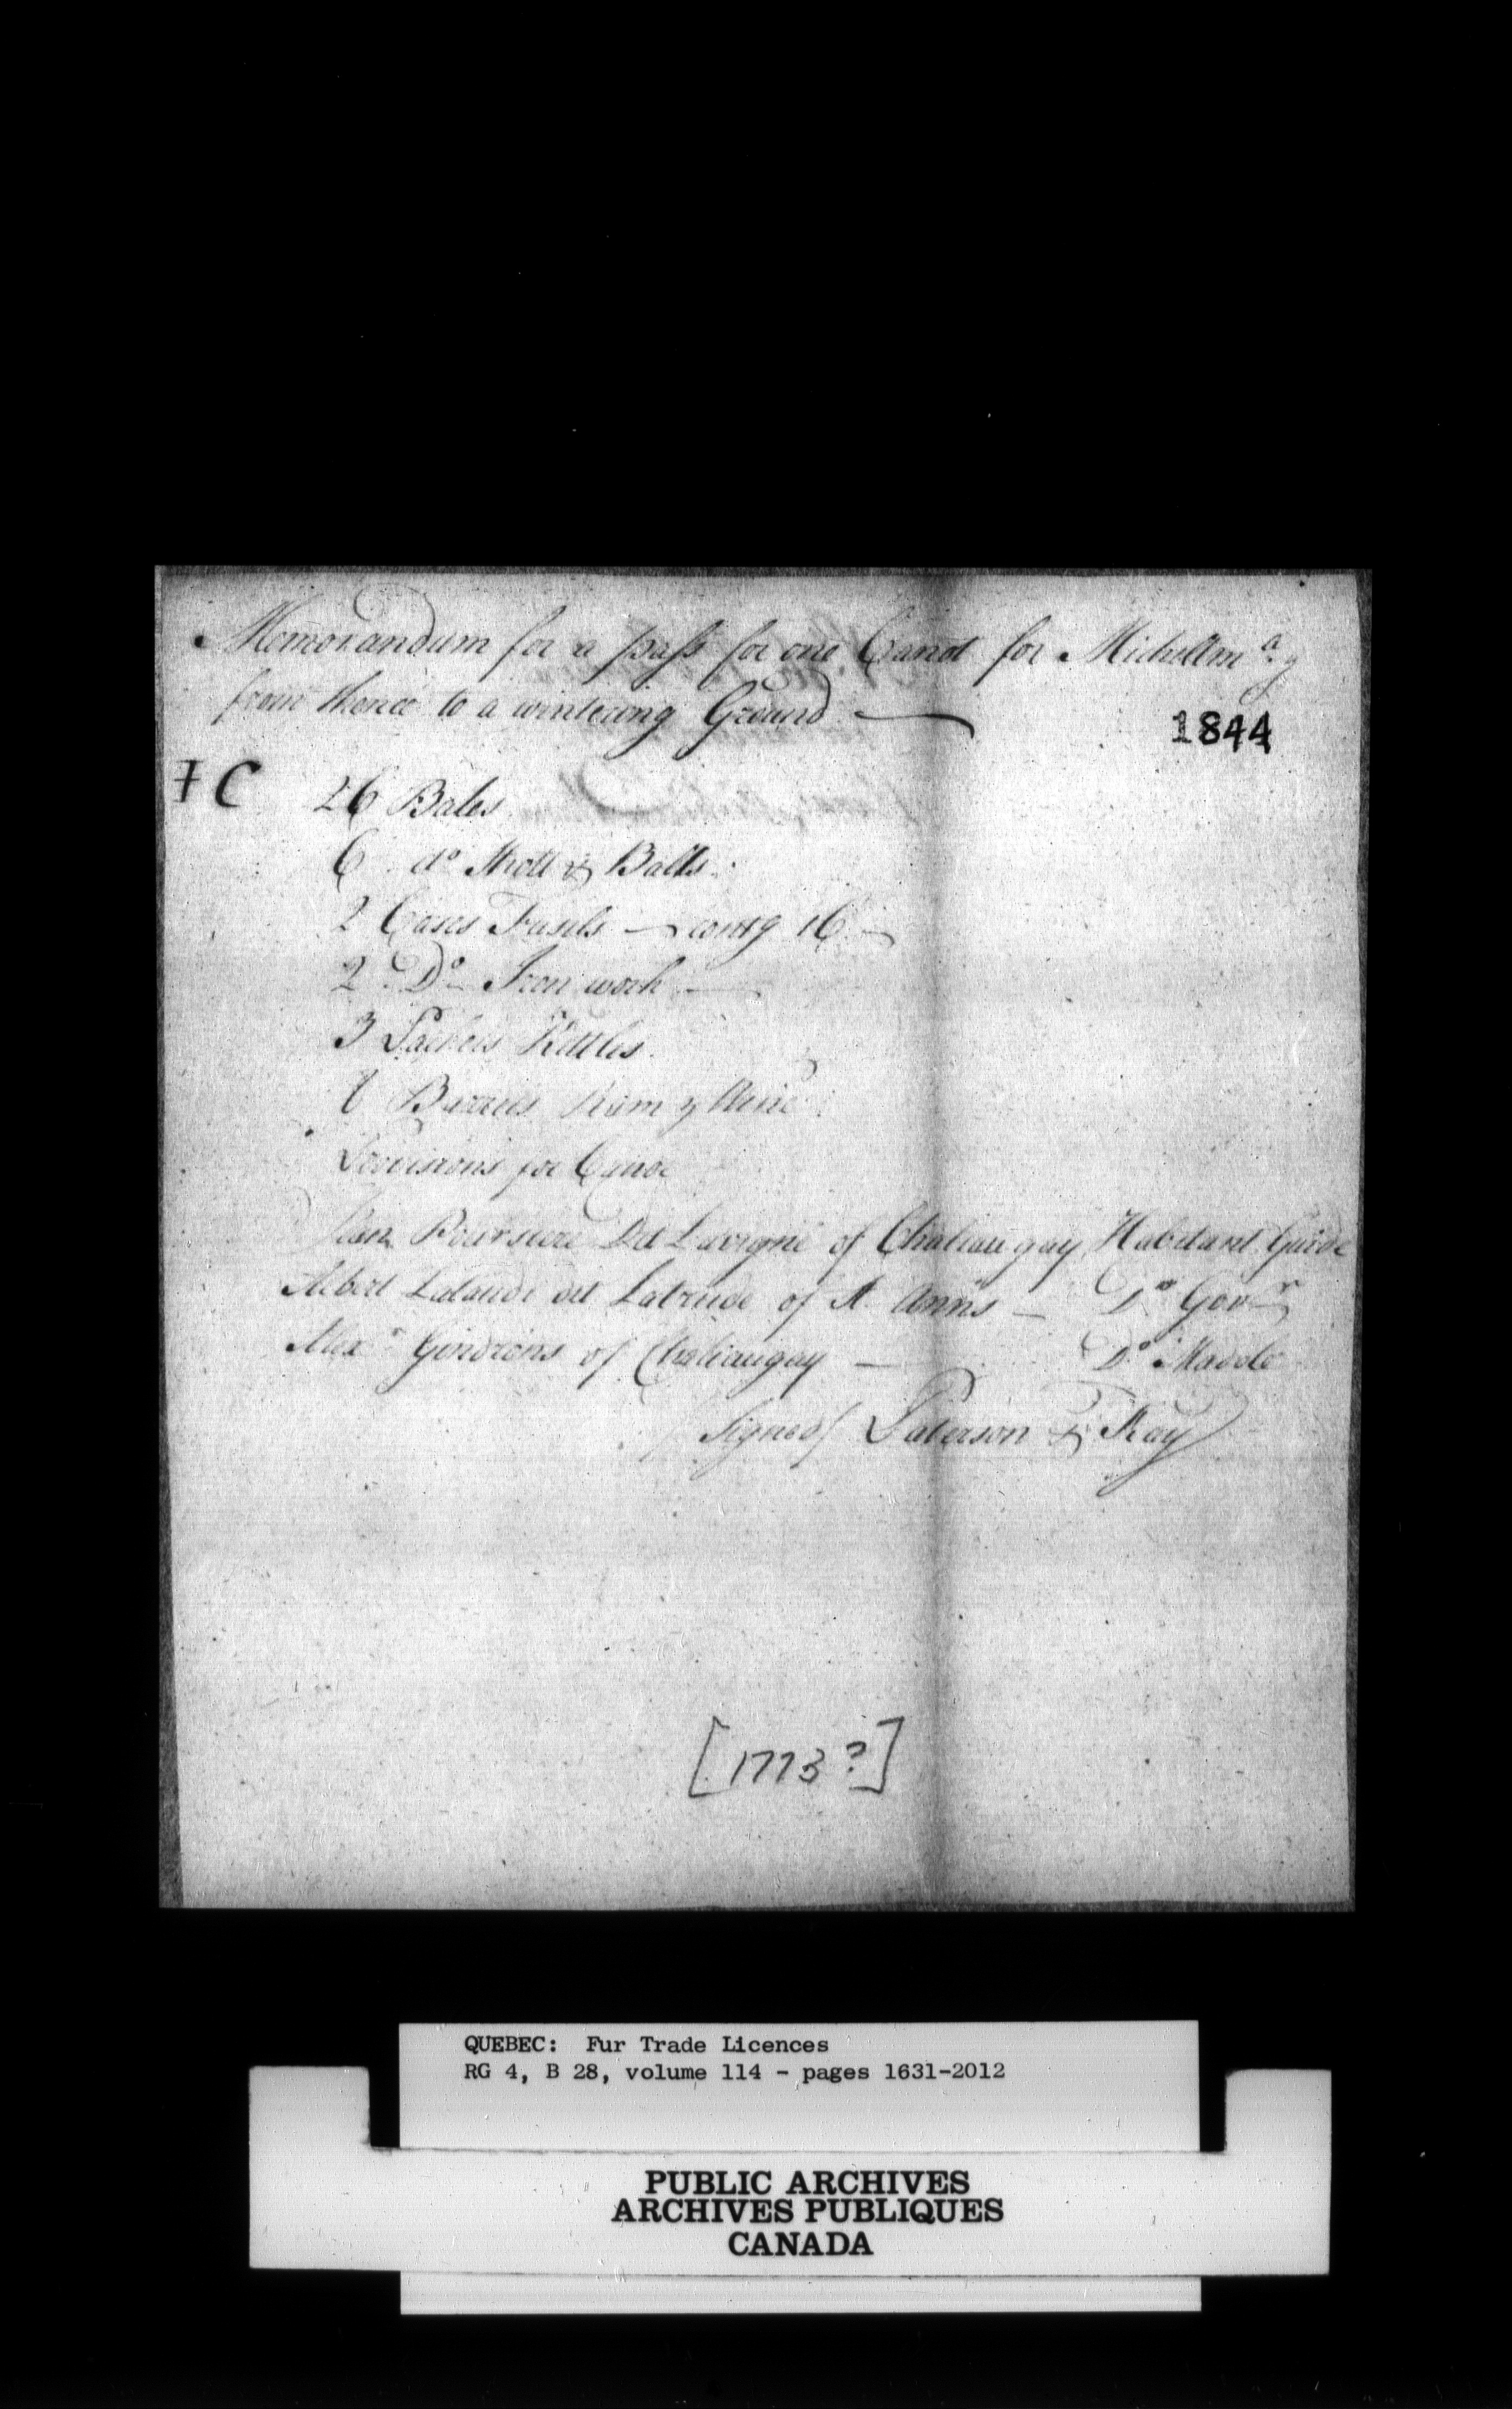 Memorandum for a pass for one Canot for Michellm a. &
from thence to a wintering Ground
1844
7 C
26 Bales
6 do Shott & Balls.
2 Cases Fusils — contg 16 —
2 Do Iron work —
3 Packers Kettles.
8 Barrels Rum & Wine
Provisions for Canoe
Jean Boursier Dit Lavigne of Chateaugay Habitant Guide
Albert Lalande dit Latreide of St Anns — Do Govr
Alexr Gendrons of Chateaugay — Do Madole
Signed/ Paterson & Kay
[1773?]
QUEBEC: Fur Trade Licences
RG 4, B 28, volume 114 - pages 1631-2012
PUBLIC ARCHIVES
ARCHIVES PUBLIQUES
CANADA